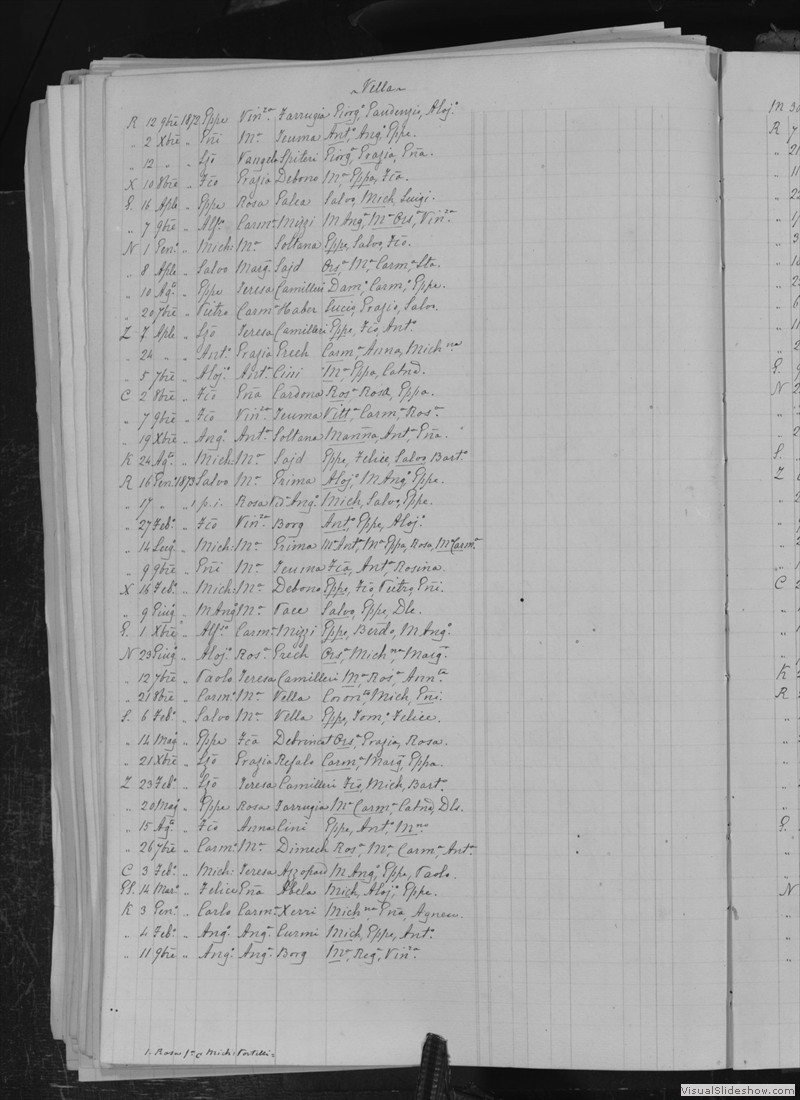 Vella
R 12 9bre 1872 Eppe Vin.za Farrugia Giorg.o, Gaudenzio, Aloj.o
" 2 Xbre " Eñi M.a Teuma Ant.o, Ang.o, Eppe.
" 12 " " Ljõ Vangela Spiteri Giorg.a, Grazia, Eña.
X 10 8bre " Fcõ Grazia Debono M.a, Eppa, Fcã.
G. 16 Aple " Eppe Rosa Galea Salvo, Mich, Luigi.
" 7 9bre " Alf.so Carm.a Mizzi M Ang.a, M.a Ors.a, Vin.za
N 1 Gen.o " Mich: M.a Soltana Eppe, Salvo, Fcõ.
" 8 Aple " Salvo Marg.a Sajd Ors.a, M.a, Carm.a, Sta.
" 10 Ag.to " Eppe Teresa Camilleri Dam.o, Carm.o, Eppa.
" 20 7bre " Pietro Carm.a Haber Lucio, Grazio, Salvo.
Z 7 Aple " Ljõ Teresa Camilleri Eppe, Fcõ, Ant.o
" 24 " " Ant.o Grazia Grech Carm.a, Anna, Mich.na
" 5 7bre " Aloj.o Ant.a Cini M.a, Eppa, Catnã.
C 2 8bre " Fcõ Eña Cardona Ros.a, Rosa, Eppa.
" 7 9bre " Fcõ Vin.za Teuma Vitt.a, Carm.a, Ros.a
" 19 Xbre " Ang.o Ant.a Soltana Mariña, Ant.a, Eña.
K 24 Ag.to " Mich: M.a Sajd Eppe, Felice, Salvo, Bart.o
R 16 Gen.o 1873 Salvo M.a Grima Aloj.o, M Ang.o, Eppe.
" 17 " " 1. p.i. Rosa V.d.a Ang.o Mich, Salvo, Eppe.
" 27 Feb.o " Fcõ Vin.za Borg Ant.o, Eppe, Aloj.o
" 14 Lug.o " Mich: M.a Grima M.a Ant.a, M.a Eppa, Rosa, M.a Carm.a
" 9 9bre " Eñi M.a Teuma Fcã, Ant.a, Rosina.
X 16 Feb.o " Mich: M.a Debono Eppe, Fcõ, Pietro, Eñi.
" 9 Giug.o " M Ang.o M.a Pace Salvo, Eppe, Dlo.
G. 1 Xbre " Alf.so Carm.a Mizzi Eppe, Berdo, M Ang.o
N 23 Giug.o " Aloj.o Ros.a Grech Ors.a, Mich.na, Marg.a
" 12 7bre " Paolo Teresa Camilleri M.a, Ros.a, Ann.ta
" 21 8bre " Carm.o M.a Vella Coron.ta, Mich, Eñi.
S. 6 Feb.o " Salvo M.a Vella Eppe, Tom.o, Felice.
" 14 Mag.o " Eppe Fcã Debrincat Ors.a, Grazia, Rosa.
" 21 Xbre " Ljõ Grazia Refalo Carm.a, Marg.a, Eppa.
Z 23 Feb.o " Ljõ Teresa Camilleri Fcõ, Mich, Bart.o
" 20 Mag.o " Eppe Rosa Farrugia M.a Carm.a, Catnã, Dls.
" 15 Ag.to " Fcõ Anna Cini Eppe, Ant.o, M.no
" 26 7bre " Carm.o M.a Dimech Ros.a, M.a, Carm.a, Ant.a
C 3 Feb.o " Mich: Teresa Azzopard M Ang.o, Eppe, Paolo.
GS. 14 Mar.o " Felice Eña Abela Mich, Aloj.o, Eppe.
K 3 Gen.o " Carlo Carm.a Xerri Mich.na, Eña, Agnese.
" 4 Feb.o " Ang.o Ang.a Curmi Mich, Eppe, Ant.o
" 11 9bre " Ang.o Ang.a Borg M.a, Reg.a, Vin.za
1. Rosa f.a q Mich: Portelli
M 30
R 7
VisualSlideshow.com